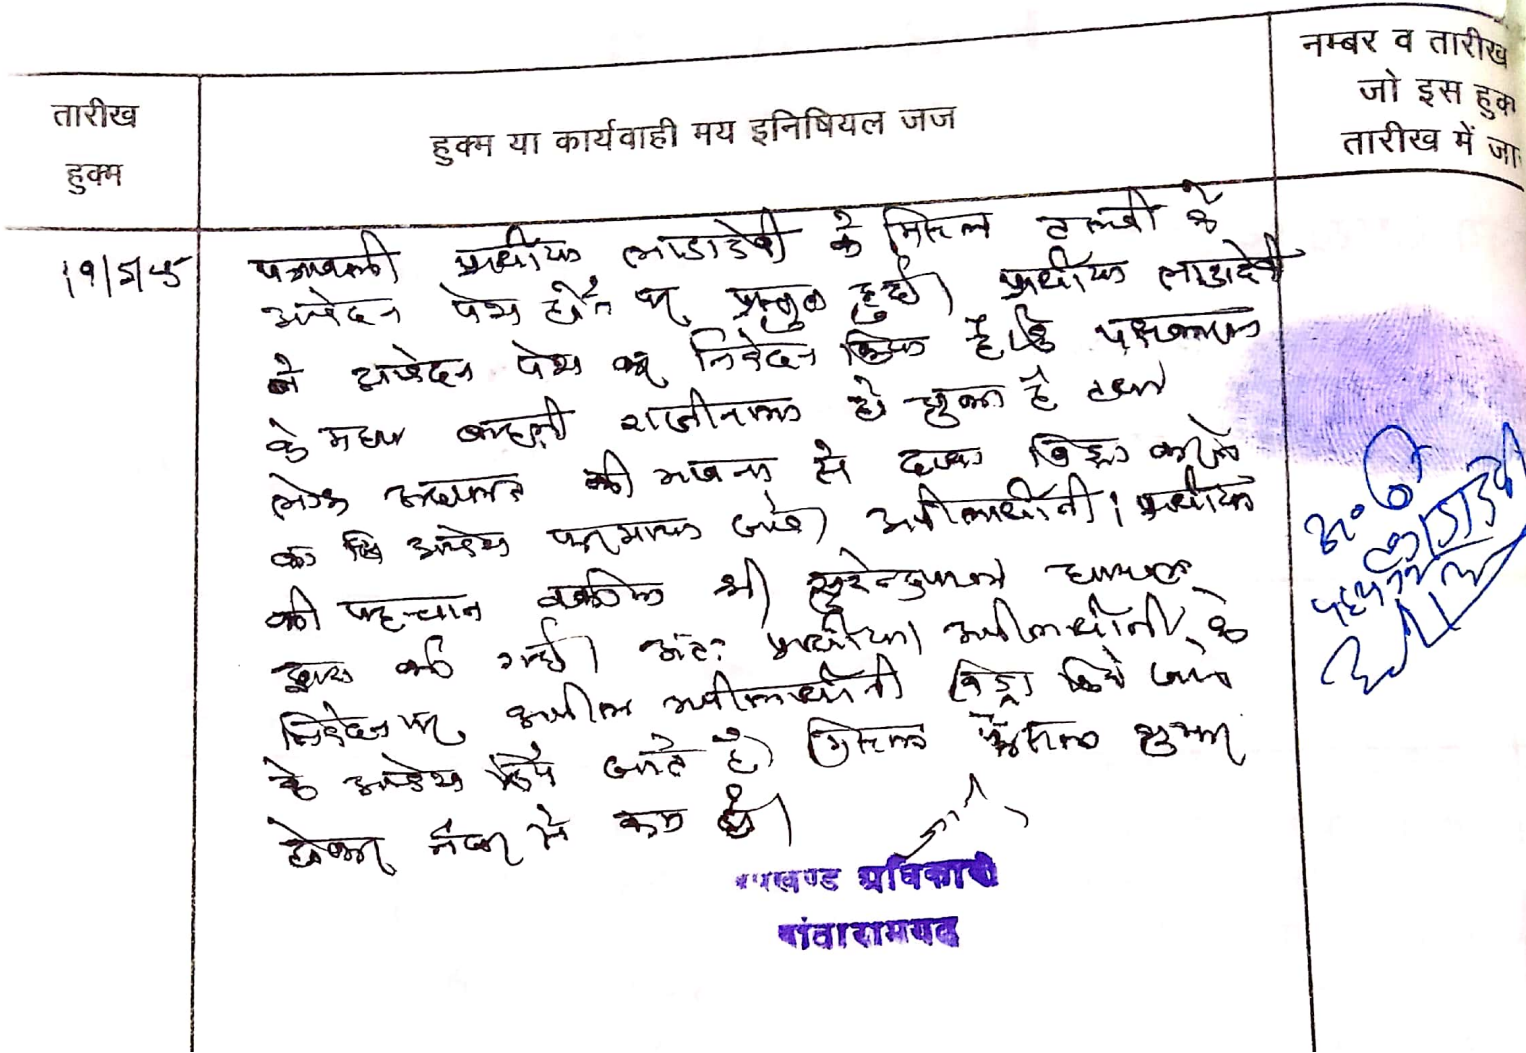 तारीख
हुक्म
हुक्म या कार्यवाही मय इनिषियल जज
नम्बर व तारीख
जो इस हुक
तारीख में जा
पत्रावली प्रार्थीया लाडादेवी के मिसल तलबी के
आवेदन पेश होने पर प्रस्तुत हुई। प्रार्थीया लाडादेवी
ने आवेदन पेश कर निवेदन किया है कि पक्षकारान
के मध्य बाहमी राजीनामा हो चुका है तथा
लोक अदालत की भावना से दावा विड्रा करने
का आदेश फरमाया जावे। अपीलार्थीनी। प्रार्थीया
की पहचान वकील श्री सुरेन्द्रपाल
द्वारा की गई। अतः प्रार्थीया। अपीलार्थीनी के
निवेदन पर अपील अपीलार्थीनी विड्रा किये जाने
के आदेश दिये जाते है। मिसल फैसल शुमार
होकर नंबर से कम हो।
उपखण्ड अधिकारी
दांतारामगढ़
अं० नि
लाडादेवी